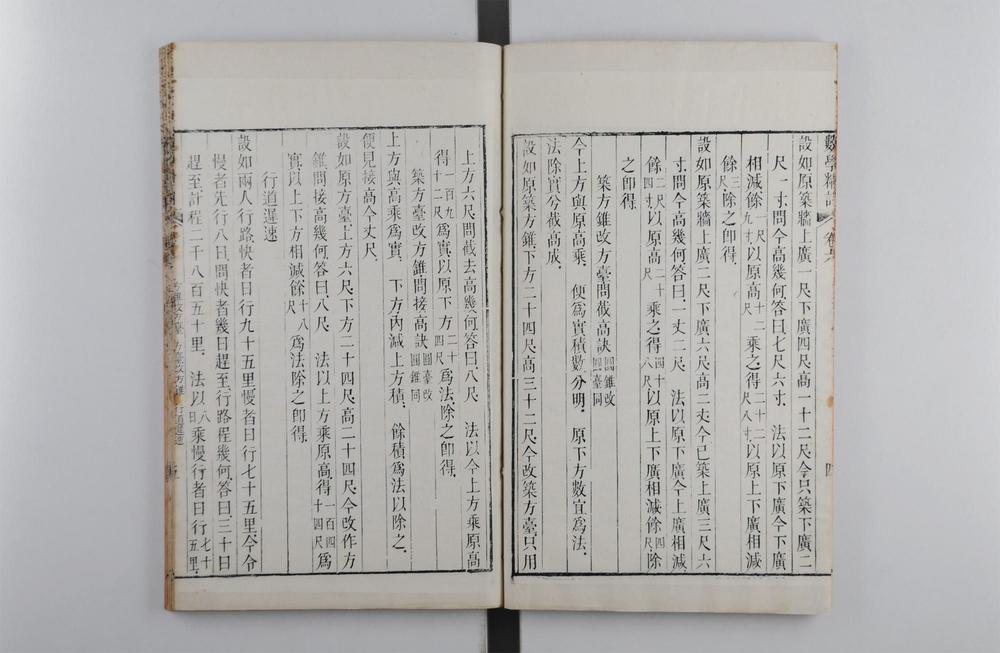 數學精詳 卷六 四
設如原築牆上廣一尺下廣四尺高一十二尺今只築下廣二
尺一寸問今高幾何答曰七尺六寸 法以原下廣今下廣
相減餘一尺九寸以原高十二尺乘之得二十二尺八寸以原上下廣相減
餘三尺除之卽得
設如原築牆上廣二尺下廣六尺高二丈今已築上廣三尺六
寸問今高幾何答曰一丈二尺 法以原下廣今上廣相減
餘二尺四寸以原高二十尺乘之得四十八尺以原上下廣相減餘四尺除
之卽得
築方錐改方臺問截高訣圓錐改圓臺同
今上方與原高乘 便爲實積數分明 原下方數宜爲法
法除實兮截高成
設如原築方錐下方二十四尺高三十二尺今改築方臺只用
上方六尺問截去高幾何答曰八尺 法以今上方乘原高
得一百九十二尺爲實以原下方二十四尺爲法除之卽得
築方臺改方錐問接高訣圓臺改圓錐同
上方與高乘爲實 下方內減上方積 餘積爲法以除之
便見接高今丈尺
設如原方臺上方六尺下方二十四尺高二十四尺今改作方
錐問接高幾何答曰八尺 法以上方乘原高得一百四十四尺爲
實以上下方相減餘十八尺爲法除之卽得
行道遲速
設如兩人行路快者日行九十五里慢者日行七十五里今令
慢者先行八日問快者幾日趕至行路程幾何答曰三十日
趕至計程二千八百五十里 法以八日乘慢行者日行七十五里